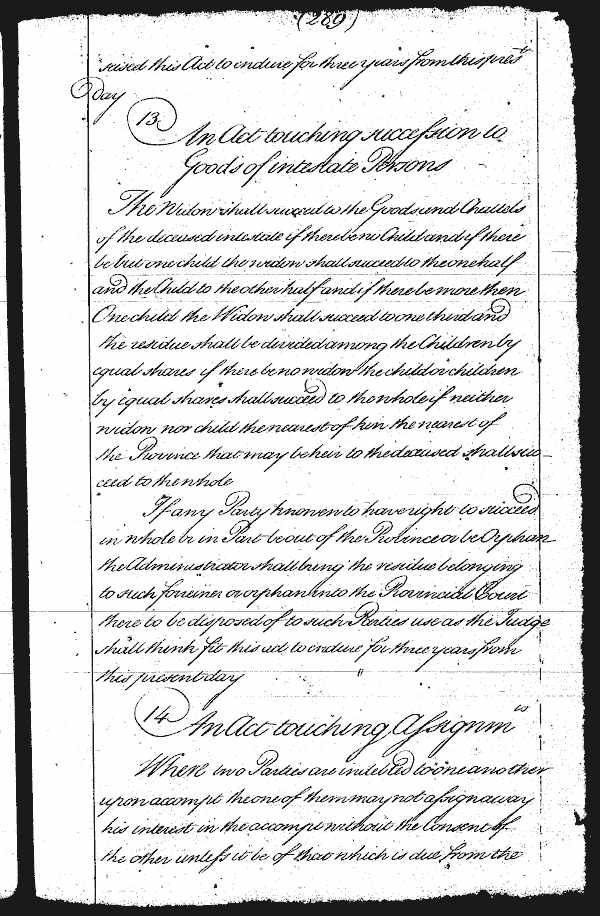 (289)
cised this Act to endure for three years from this presᵗ
day
13 An Act touching succession to
Goods of intestate Persons
The Widow shall succeed to the Goods and Chattels
of the deceased intestate if there be no Child and if there
be but one child the widow shall succeed to the one half
and the Child to the other half and if there be more then
One child the Widow shall succeed to one third and
the residue shall be divided among the Children by
equal shares if there be no widow the child or children
by equal shares shall succeed to the whole if neither
widow nor child the nearest of kin the nearest of
the Province that may be heir to the deceased shall suc-
ceed to the whole
If any Party known to have right to succeed
in whole or in Part be out of the Province or be Orphan
the Administrator shall bring the residue belonging
to such foreiner or orphan into the Provincial Court
there to be disposed of to such Parties use as the Judge
shall think fit this act to endure for three years from
this present day
14 An Act touching Assignmᵗˢ
Where two Parties are indebted to one another
upon accompt the one of them may not assign away
his interest in the accompt without the Consent of
the other unless it be of that which is due from the